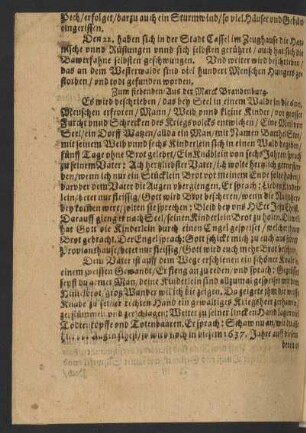 Pech/ erfolget/ darzu auch ein Sturmwind/ so viel Häuser und Gebäw
eingerissen.
Den 22. haben sich in der Stadt Cassel im Zeughause die Har-
nische vnnd Rüstungen vnnd sich selbsten gerühret/ auch hat sich die
Bawersahne selbsten geschwungen. Vnd weiter wird beschrieben/
das an dem Westerwalde sind viel hundert Menschen Hungers ge-
storben/ vnd todt gefunden worden.
Zum siebenden/ Aus der Marck Brandenburg.
Es wird beschrieben/ das bey Seel in einem Walde in die 600.
Menschen erfroren/ Mann/ Weib vnnd kleine Kinder/ vor grosser
Furcht vnd Schrecken des Kriegsvolcks entwichen/ Eine Meil von
Seel/ ein Dorff Watzen/ allda ein Man/ mit Namen
mit seinem Weib vnnd sechs Kinderlein sich in einen Wald begeben/
fünff Tage ohne Brot gelebet/ Ein Knäblein von sechs Jahren sprach
zu seinem Vater: Ach hertzliebster Vater/ ich wolte hertzlich gerne ster-
ben/ wenn ich nur ein Stücklein Brot vor meinem Ende solte haben/
darvber dem Vater die Augen vbergiengen/ Er sprach: Lieben Kinder-
lein/ betet nur fleissig/ Gott wird Brot bescheren/ wenn die Mutter
bey kommen wert/ solten sie sprechen: Bleib bey uns HErr JEsu Christ.
Darauff gienger nach Seel/ seinen Kinderlein Brot zu holen. Damit
hat Gott die Kinderlein durch einen Engel gespeiset/ welcher ihnen
Brot gebracht. Der Engel sprach: Gott schickt mich zu auch aus seinem
Proviandhause/ betet noch nur fleissig/ Gott wird auch mehr Brot bescheren.
Dem Vater ist auff dem Wege erschienen ein schöner Knabe/ in
einem weissen Gewandt/ Er fieng an zu reden/ vnd sprach:
seyst du armer Man/ deine Kinderlein sind allzumal gespeiset mit dem
Himelbrot/ gros Wunder wil ich dir zeigen. Da zeigete ihm der
Knabe zu seiner rechten Hand ein gewaltiges Kriegsheer zehawen/
zerstümmelt vnd zerschlagen: Weiter zu seiner lincken Hand lagen
Todtenköpffe vnd Todenbaaren. Er sprach: Schaw man/ wie du
hie vor augen sihest/ so wird noch in diesem 1637. Jahre auff dem